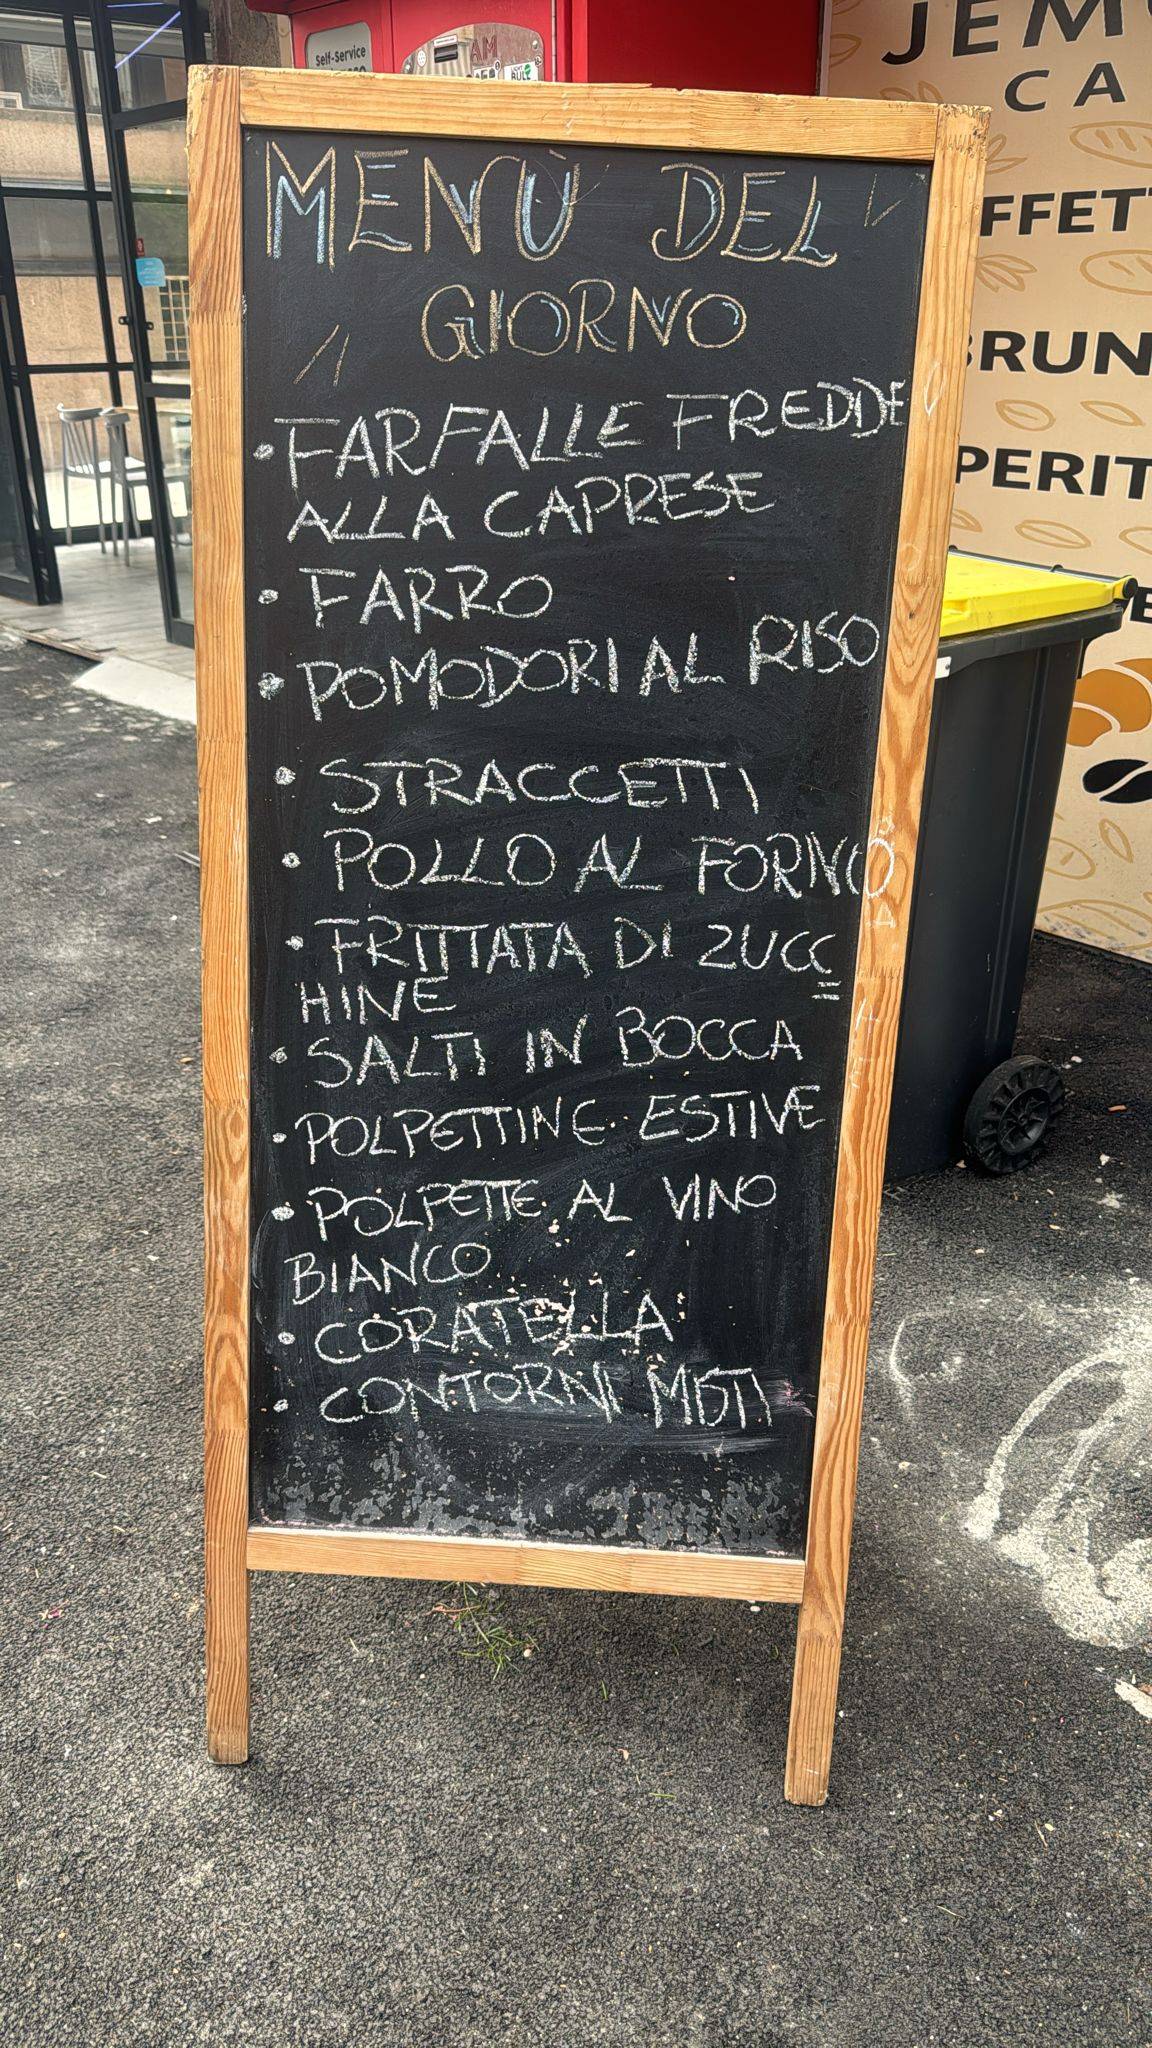 self-service
AM
JEM
CA
FFETT
BRUN
PERIT
MENÙ DEL
GIORNO
• FARFALLE FREDDE
ALLA CAPRESE
• FARRO
• POMODORI AL RISO
• STRACCETTI
• POLLO AL FORNO
• FRITTATA DI ZUCC
HINE
• SALTI IN BOCCA
• POLPETTINE ESTIVE
• POLPETTE AL VINO
BIANCO
• CORATELLA
• CONTORNI MISTI